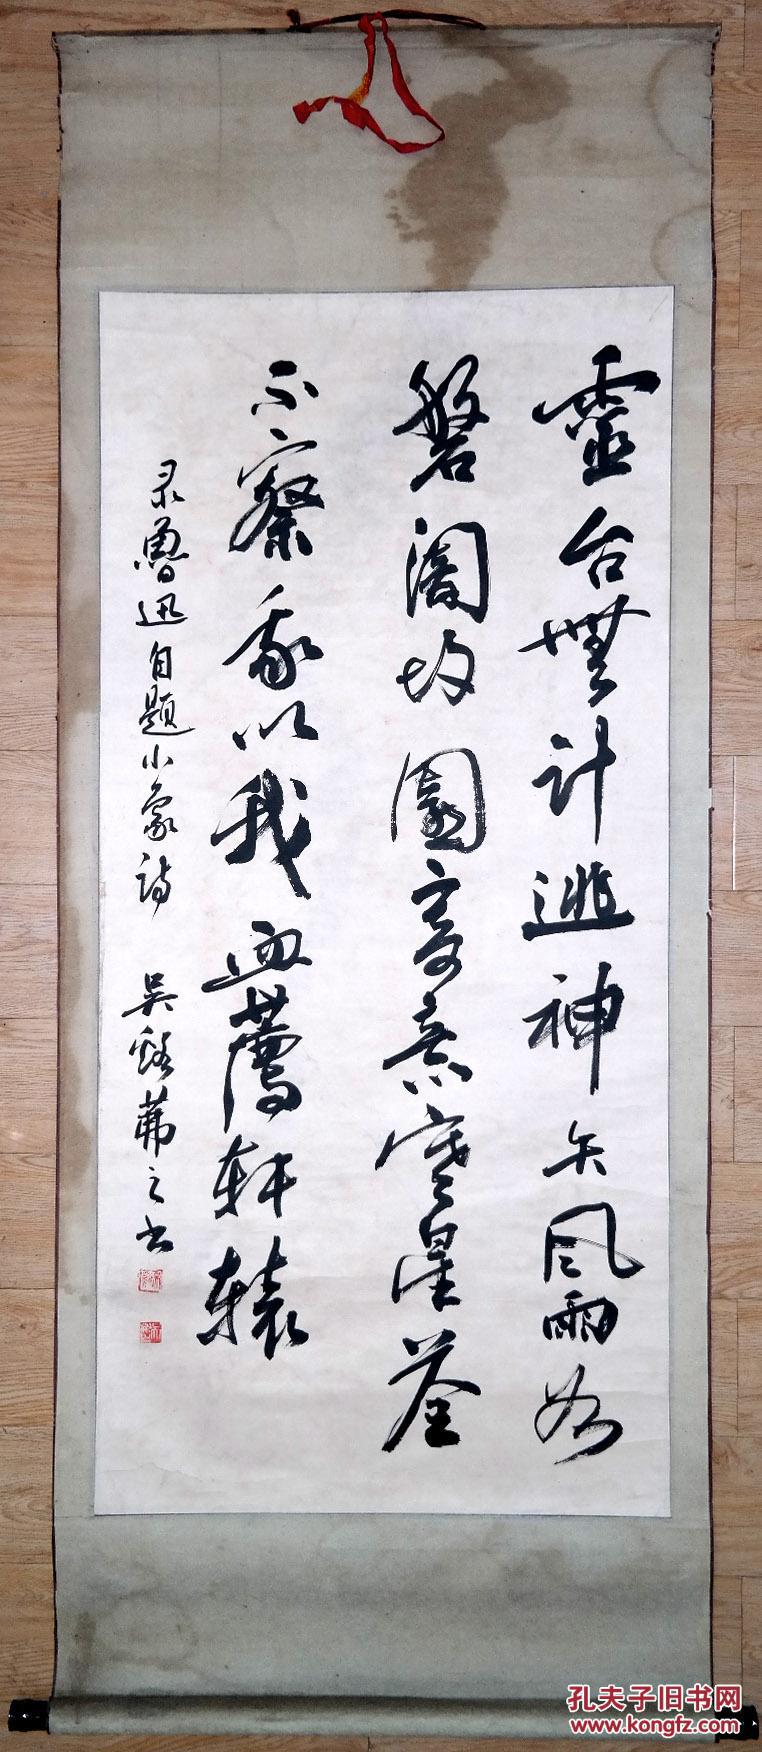 靈台無計逃神矢風雨如
磐闇故園寄意寒星荃
不察我以我血薦轩辕
录魯迅自题小象诗 吴谿茀之书
孔夫子旧书网
www.kongfz.com